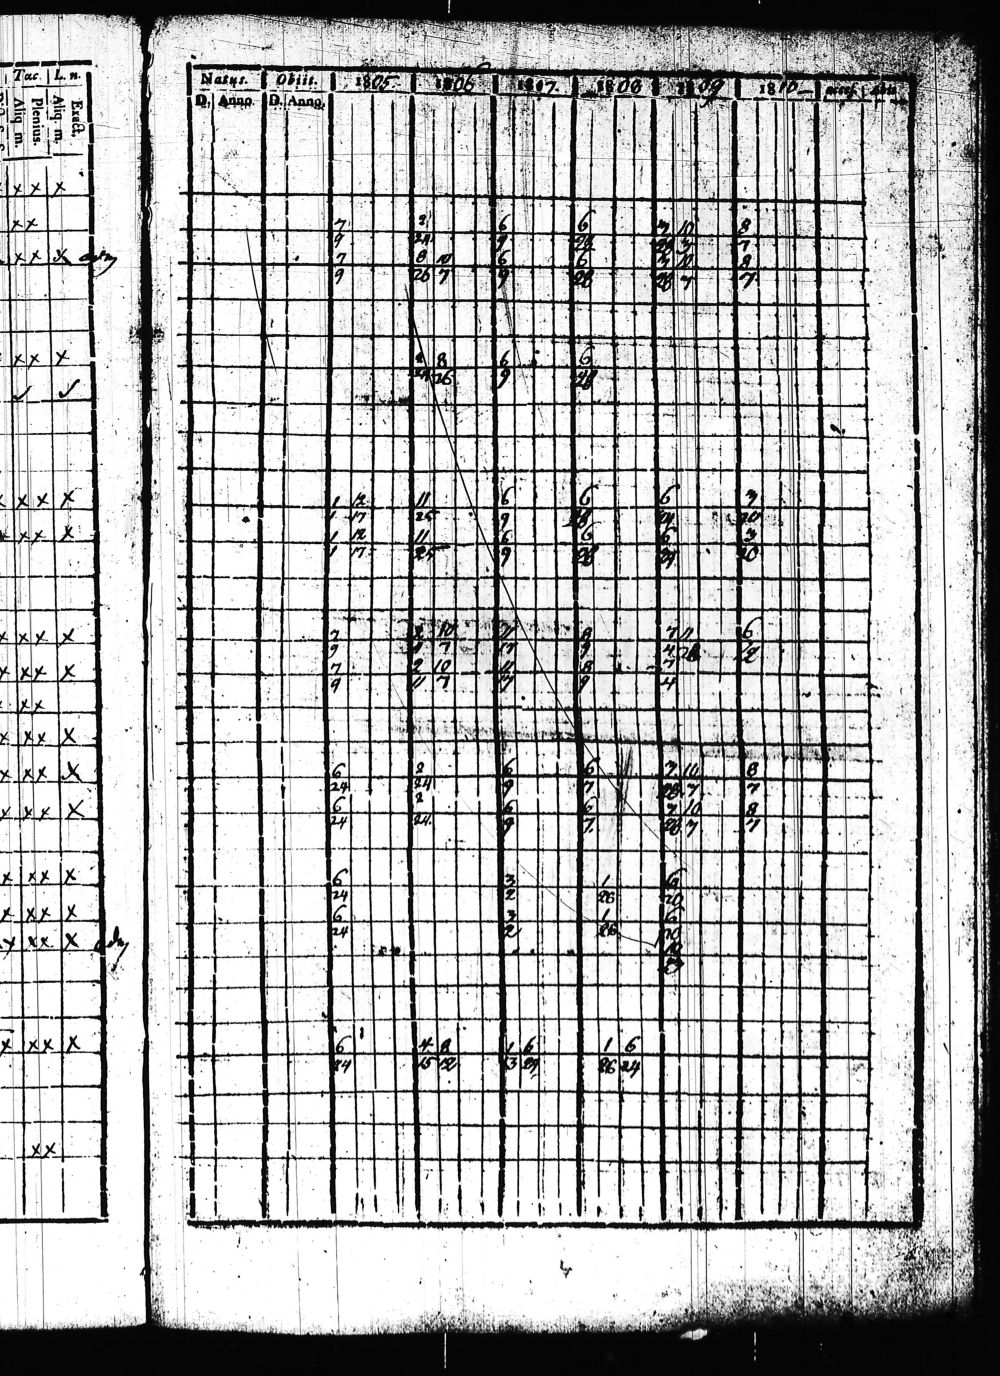 Tac. L. n. Natus. Obiit. 1805 1806 1807. 1808 1809 1810
Aliq. m. Plenius. Aliq. m. Exact. D. Anno. D. Anno.
x x x x
x x
7 2 6 6 7 10 8
9 24 9 28 28 7 7
x x x
7 8 10 6 6 7 10 8
9 26 7 9 28 28 7 7
x x x
2 8 6 6
24 26 9 28
x x x x
1 12 11 6 6 6 3
1 17 25 9 28 24 20
x x x
1 12 11 6 6 6 3
1 17 25 9 28 24 20
x x x x
7 2 10 11 8 7 11 6
9 11 7 17 9 4 26 12
x x x
7 2 10 11 8 7
9 11 7 17 9 4
x x
x x x x
x x x x
6 2 6 6 7 10 8
24 24 9 7 28 7 7
x x x x
6 2 6 6 7 10 8
24 24 9 7 28 7 7
x x x x
6 3 1 6
24 2 26 20
x x x x
6 3 1 6
24 2 26 20
x x x
10
x x x x
6 4 8 1 6 1 6
24 15 12 13 24 26 24
x x